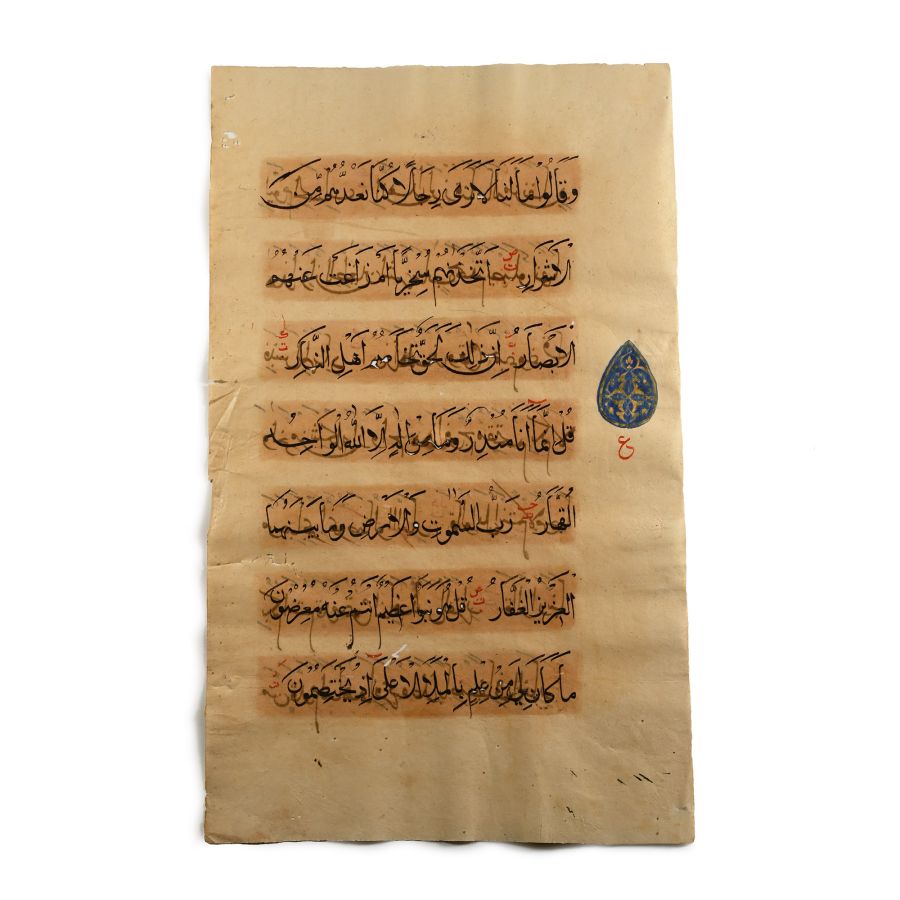 وَقَالُوا مَا لَنَا لَا نَرَىٰ رِجَالًا كُنَّا نَعُدُّهُمْ مِنَ
الْأَشْرَارِ أَتَّخَذْنَاهُمْ سِخْرِيًّا أَمْ زَاغَتْ عَنْهُمُ
الْأَبْصَارُ إِنَّ ذَٰلِكَ لَحَقٌّ تَخَاصُمُ أَهْلِ النَّارِ
قُلْ إِنَّمَا أَنَا مُنْذِرٌ وَمَا مِنْ إِلَٰهٍ إِلَّا اللَّهُ الْوَاحِدُ
الْقَهَّارُ رَبُّ السَّمَٰوَٰتِ وَالْأَرْضِ وَمَا بَيْنَهُمَا
الْعَزِيزُ الْغَفَّارُ قُلْ هُوَ نَبَؤٌا عَظِيمٌ أَنْتُمْ عَنْهُ مُعْرِضُونَ
مَا كَانَ لِيَ مِنْ عِلْمٍ بِالْمَلَإِ الْأَعْلَىٰ إِذْ يَخْتَصِمُونَ
ع